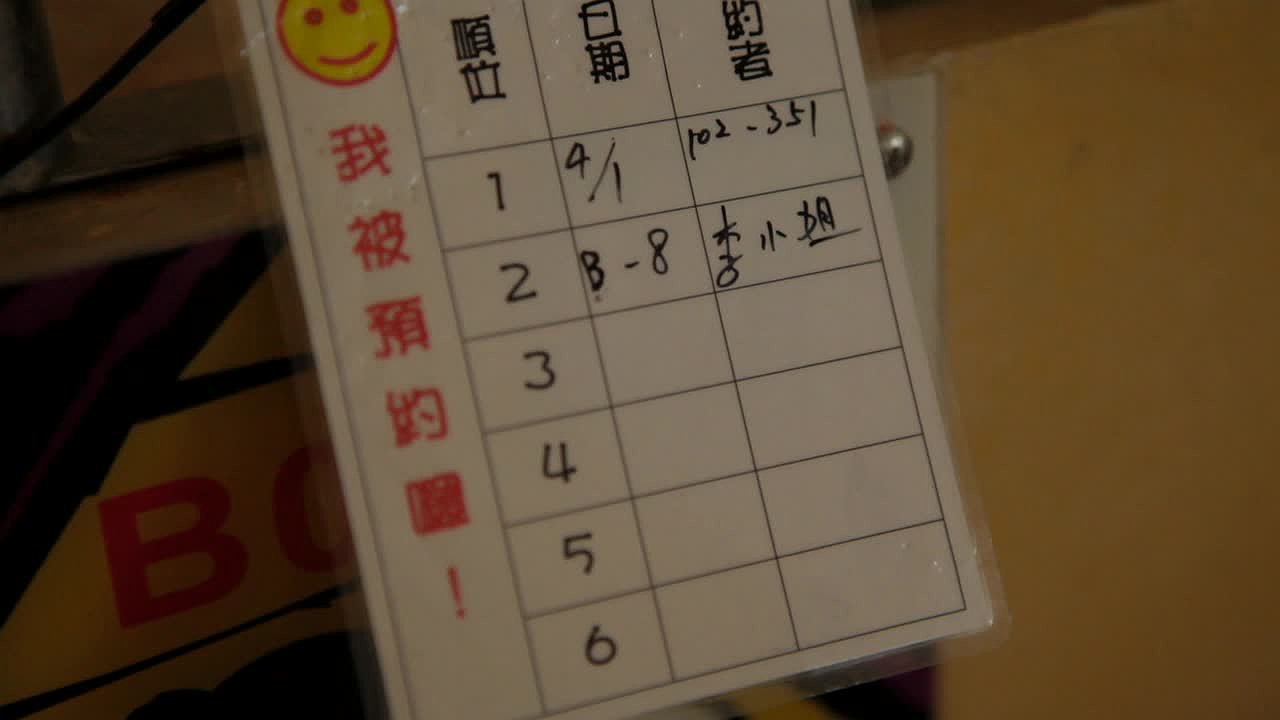 我被預約囉！
順位 日期 約者
1 4/1 102-351
2 B-8 李小姐
3
4
5
6
B